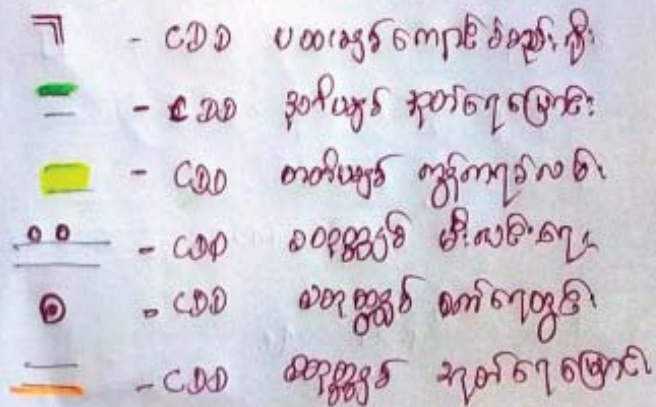 - CDD ပထမနှစ် ကျောင်းစည်းရိုး
- CDD ဒုတိယနှစ် အုတ်ရေမြောင်း
- CDD တတိယနှစ် ကွန်ကရစ်လမ်း
- CDD စတုတ္ထနှစ် မီးလင်းရေး
- CDD စတုတ္ထနှစ် စက်ရေတွင်း
- CDD စတုတ္ထနှစ် အုတ်ရေမြောင်း